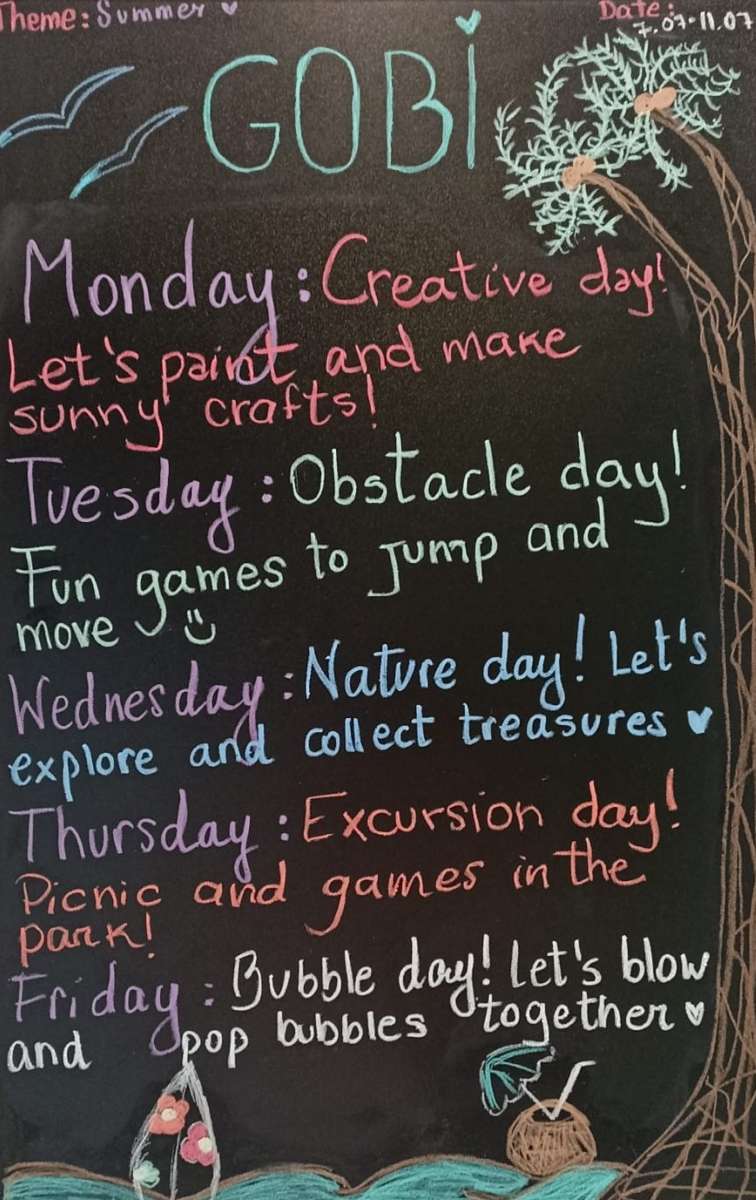 Theme: Summer ♥
Date:
7.07-11.07
GOBI
Monday: Creative day!
Let's paint and make
sunny crafts!
Tuesday: Obstacle day!
Fun games to jump and
move
Wednesday: Nature day! Let's
explore and collect treasures ♥
Thursday: Excursion day!
Picnic and games in the
park!
Friday: Bubble day! Let's blow
and pop bubbles together ♥